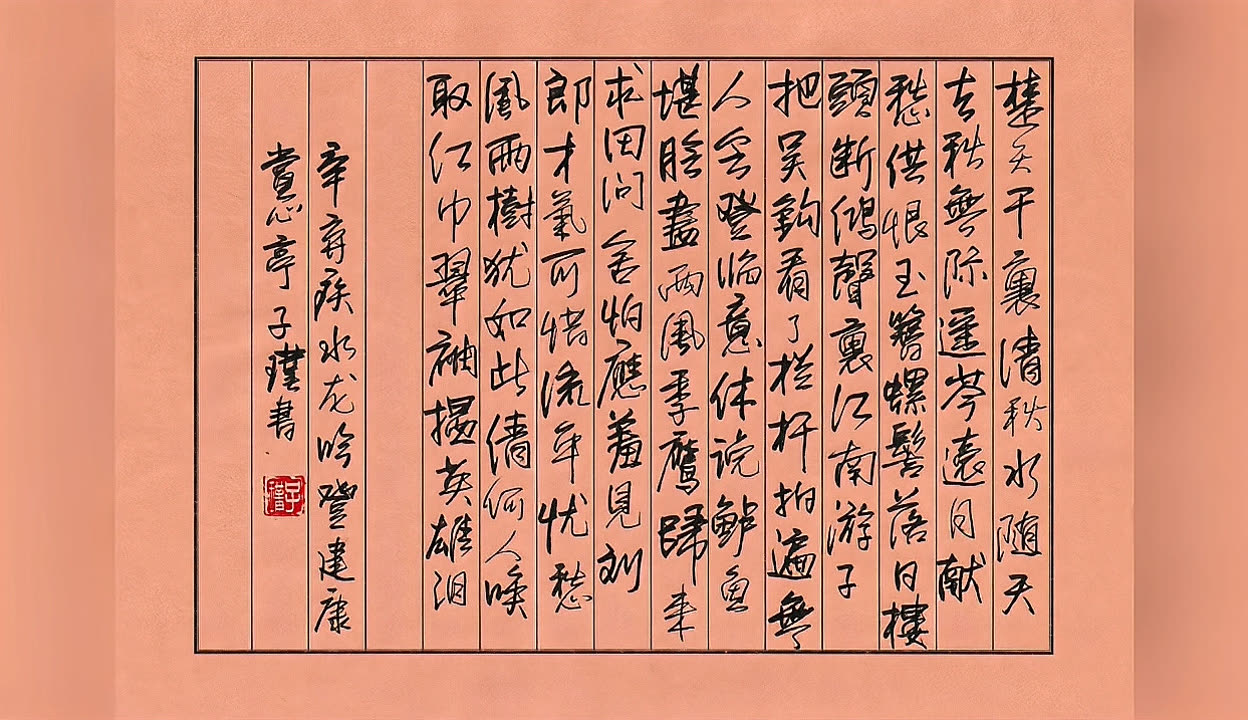 楚天千裏清秋水随天
去秋無際遥岑遠目献
愁供恨玉簪螺髻落日樓
頭断鴻聲裏江南游子
把吴鈎看了栏杆拍遍無
人会登临意休说鲈鱼
堪脍盡西風季鷹歸来
求田问舍怕應羞見刘
郎才氣可惜流年忧愁
風雨樹犹如此倩何人唤
取红巾翠袖揾英雄泪
辛弃疾水龙吟登建康
赏心亭子瑾書
子瑾